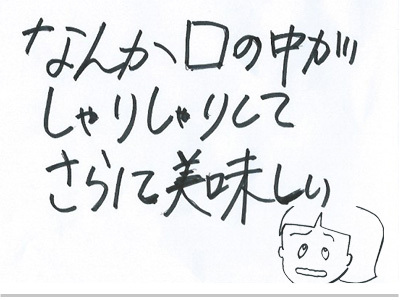 なんか口の中が
しゃりしゃりして
さらに美味しい